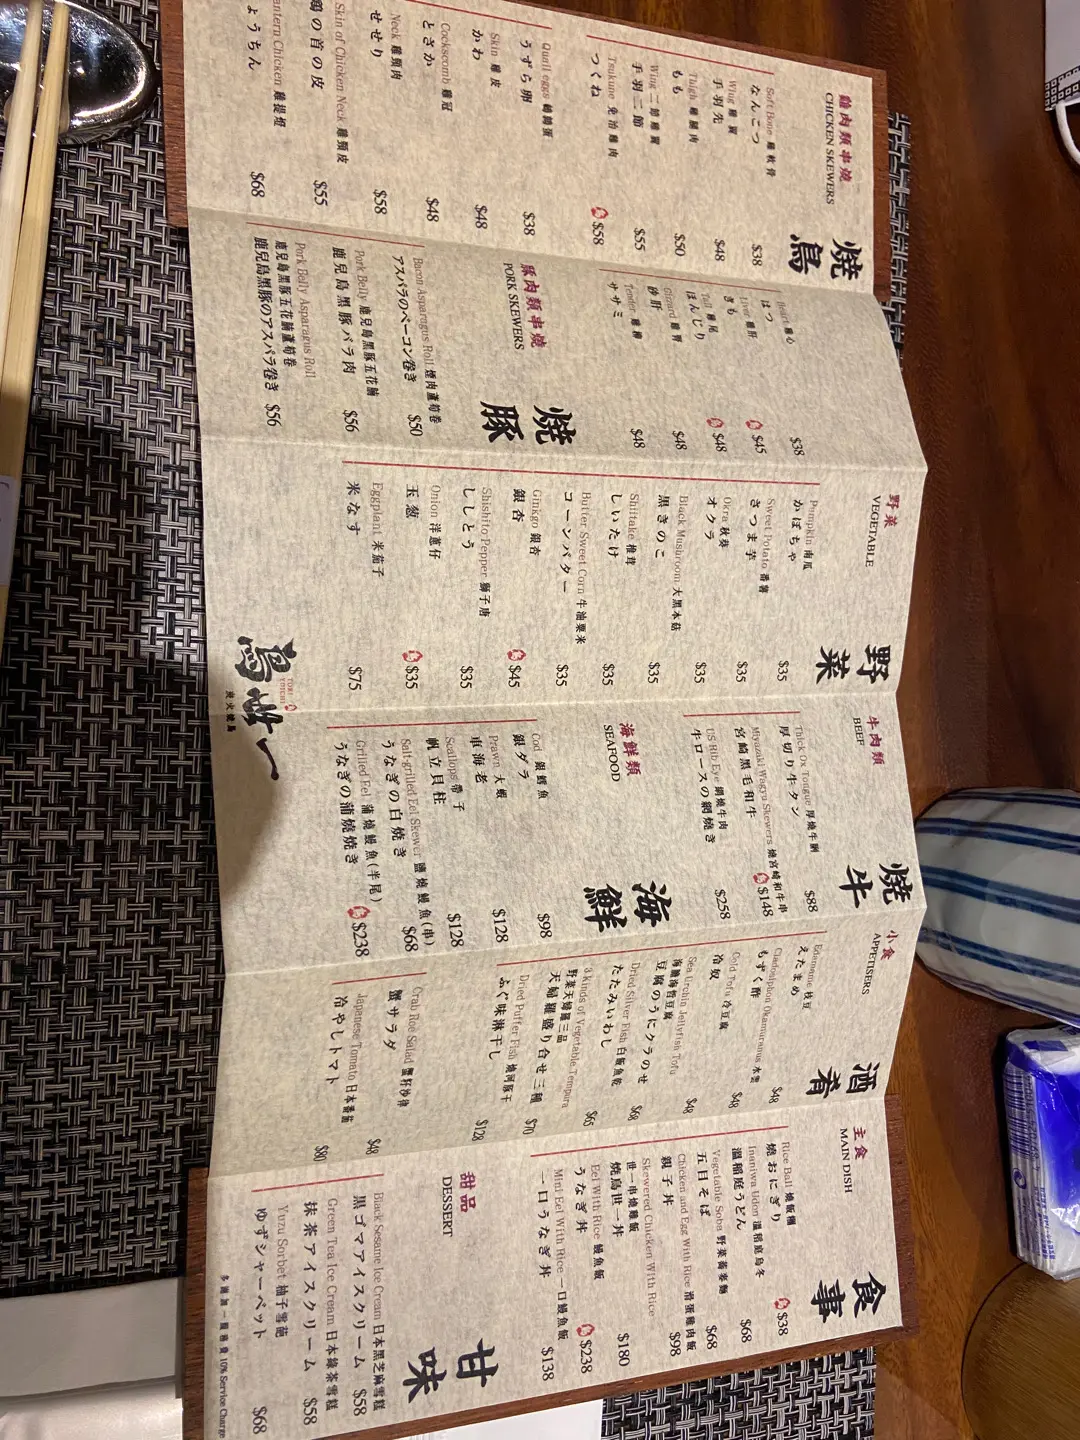 雞肉類串燒
CHICKEN SKEWERS
焼鳥
Soft Bone 雞軟骨
なんこつ
$38
Wing 雞翼
手羽先
$48
Thigh 雞腿肉
もも
$50
Wing 二節雞翼
手羽二節
$55
Tsukune 免治雞肉
つくね
$58
Quail eggs 鵪鶉蛋
うずら卵
$38
Skin 雞皮
かわ
$48
Cockscomb 雞冠
とさか
$48
Neck 雞頸肉
せせり
$58
Skin of Chicken Neck 雞頸皮
鶏の首の皮
$55
antern Chicken 雞提燈
ょうちん
$68
Heart 雞心
はつ
$38
Liver 雞肝
きも
$45
Tail 雞尾
ぼんじり
$48
Gizzard 雞腎
砂肝
$48
Tender 雞柳
ササミ
$48
豚肉類串燒
PORK SKEWERS
焼豚
Bacon Asparagus Roll 煙肉蘆荀卷
アスパラのベーコン巻き
$50
Pork Belly 鹿兒島黑豚五花腩
鹿児島黒豚バラ肉
$56
Pork Belly Asparagus Roll
鹿兒島黑豚五花腩蘆荀卷
鹿児島黒豚のアスパラ巻き
$56
野菜
VEGETABLE
野菜
Pumpkin 南瓜
かぼちゃ
$35
Sweet Potato 番薯
さつま芋
$35
Okra 秋葵
オクラ
$35
Black Mushroom 大黑本菇
黒きのこ
$35
Shiitake 椎茸
しいたけ
$35
Butter Sweet Corn 牛油粟米
コーンバター
$35
Ginkgo 銀杏
銀杏
$45
Shishito Pepper 獅子唐
ししとう
$35
Onion 洋蔥仔
玉葱
$35
Eggplant 米茄子
米なす
$75
鳥世一
TORI
YOICHI
炭火燒鳥
牛肉類
BEEF
焼牛
Thick Ox Tongue 厚燒牛脷
厚切り牛タン
$88
Miyazaki Wagyu Skewers 燒宮崎和牛串
宮崎黒毛和牛
$148
US Rib Eye 網燒牛肉
牛ロースの網焼き
$258
海鮮類
SEAFOOD
海鮮
Cod 銀鱈魚
銀ダラ
$98
Prawn 大蝦
車海老
$128
Scallops 帶子
帆立貝柱
$128
Salt-grilled Eel Skewer 鹽燒鰻魚(串)
うなぎの白焼き
$68
Grilled Eel 蒲燒鰻魚(半尾)
うなぎの蒲焼焼き
$238
小食
APPETISERS
酒肴
Edamame 枝豆
えだまめ
$48
Cladosiphon Okamuranus 水雲
もずく酢
$48
Cold Tofu 冷豆腐
冷奴
$48
Sea Urchin Jellyfish Tofu
海膽海蜇豆腐
豆腐のうにクラのせ
$68
Dried Silver Fish 白飯魚乾
たたみいわし
$65
3 Kinds of Vegetable Tempura
野菜天婦羅三品
天婦羅盛り合せ三種
$70
Dried Puffer Fish 燒河豚干
ふぐ味淋干し
$128
Crab Roe Salad 蟹籽沙律
蟹サラダ
$48
Japanese Tomato 日本番茄
冷やしトマト
$80
主食
MAIN DISH
食事
Rice Ball 燒飯糰
焼おにぎり
$38
Inaniwa Udon 溫稻庭烏冬
温稲庭うどん
$68
Vegetable Soba 野菜蕎麥麵
五目そば
$68
Chicken and Egg With Rice 滑蛋雞肉飯
親子丼
$98
Skewered Chicken With Rice
世一串燒雞飯
焼鳥世一丼
$180
Eel With Rice 鰻魚飯
うなぎ丼
$238
Mini Eel With Rice 一口鰻魚飯
一口うなぎ丼
$138
甜品
DESSERT
甘味
Black Sesame Ice Cream 日本黑芝麻雪糕
黒ゴマアイスクリーム
$58
Green Tea Ice Cream 日本綠茶雪糕
抹茶アイスクリーム
$58
Yuzu Sorbet 柚子雪葩
ゆずシャーベット
$68
多謝加一服務費 10% Service Charge